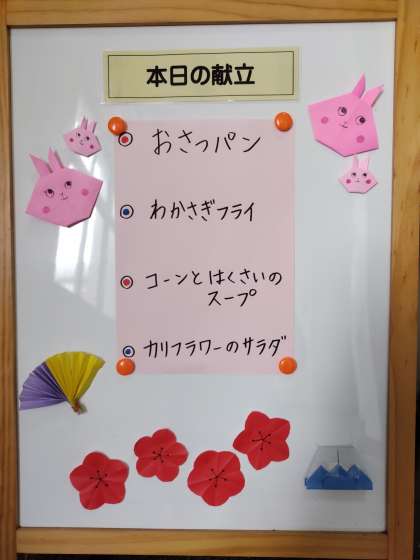 本日の献立
おさつパン
わかさぎフライ
コーンとはくさいの
スープ
カリフラワーのサラダ